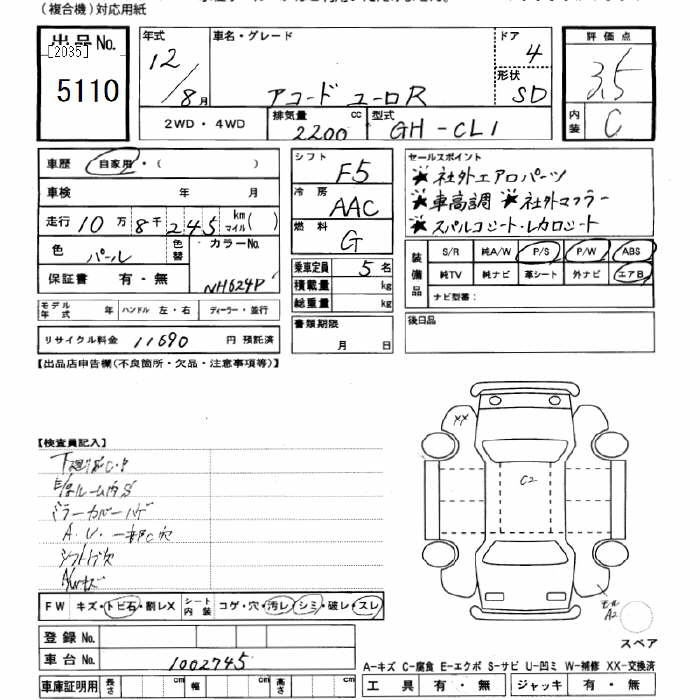 (複合機)対応用紙
出品No.
[2035]
5110
年式
12/8月
車名・グレード
アコード ユーロR
ドア
4
形状
SD
評価点
3.5
内装
C
2WD・4WD
排気量
2200 cc
型式
GH-CL1
車歴 自家用・( )
車検 年 月
走行 10万8千245 km マイル( )
色 パール
色替
カラーNo.
NH624P
保証書 有・無
モデル年式 年 ハンドル 左・右 ディーラー・並行
リサイクル料金 11690 円 預託済
シフト F5
冷房 AAC
燃料 G
乗車定員 5 名
積載量 kg
総重量 kg
書類期限
月 日
セールスポイント
★社外エアロパーツ
★車高調 ★社外マフラー
★スパルコシート・レカロシート
装備品
S/R 純A/W P/S P/W ABS
純TV 純ナビ 革シート 外ナビ エアB
ナビ型番:
後日品
【出品店申告欄(不良箇所・欠品・注意事項等)】
【検査員記入】
ミラーカバーハゲ
XX
C2
A2
FW キズ・トビ石・割レX シート内装 コゲ・穴・汚レ・シミ・破レ・スレ
登録No.
車台No. 1002745
車庫証明用 長さ cm 幅 cm 高さ cm
スペア
A-キズ C-腐食 E-エクボ S-サビ U-凹ミ W-補修 XX-交換済
工具 有・無 ジャッキ 有・無